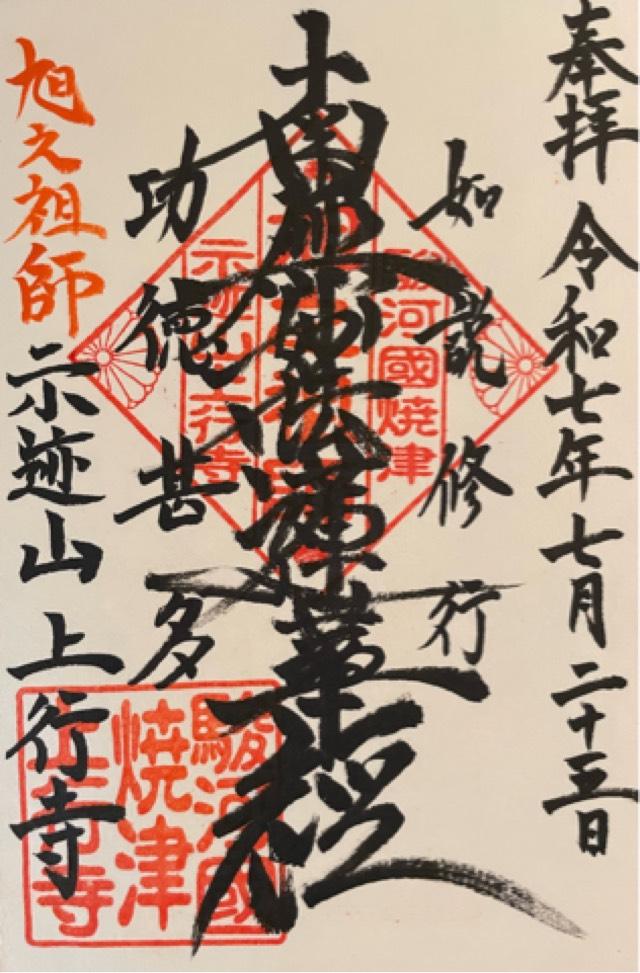 奉拝 令和七年七月二十五日
如説修行
南無妙法蓮華経
功徳甚多
旭之祖師
示迹山 上行寺
駿河國焼津
示迹山上行寺
駿河國
焼津
上行寺